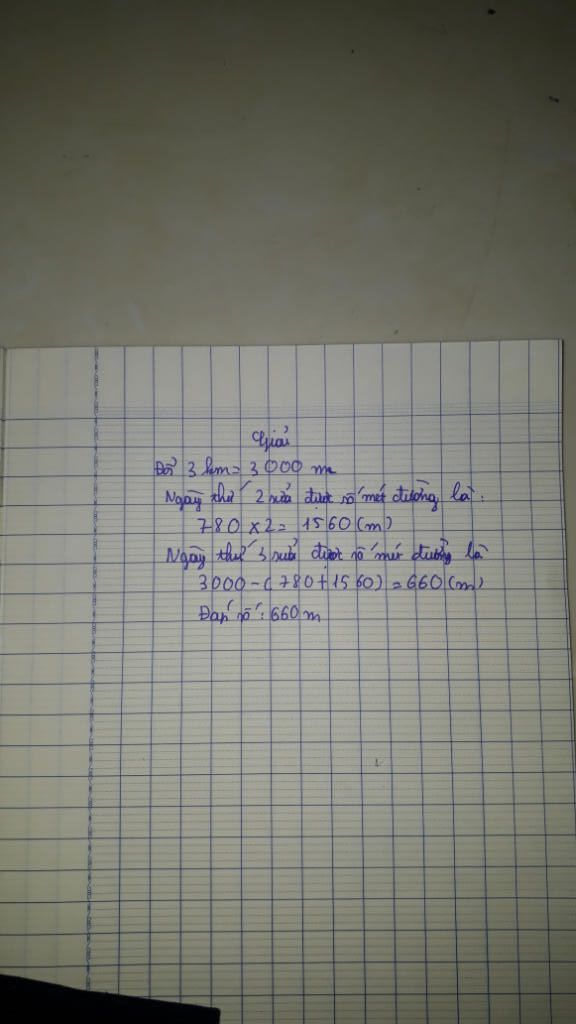 Giải
Đổi 3 km = 3000 m
Ngày thứ 2 sửa được số mét đường là:
780 x 2 = 1560 (m)
Ngày thứ 3 sửa được số mét đường là
3000 - ( 780 + 1560) = 660 (m)
Đáp số: 660 m